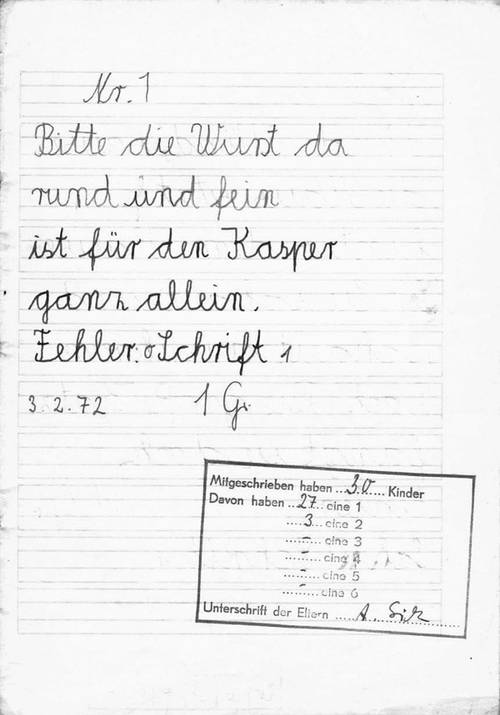 Nr. 1
Bitte die Wurst da
rund und fein
ist für den Kasper
ganz allein.
Fehler: 0 Schrift 1
3. 2. 72 1 G.
Mitgeschrieben haben ...30.... Kinder
Davon haben ..27... eine 1
.....3... eine 2
.....-... eine 3
.....-... eine 4
.....-... eine 5
.....-... eine 6
Unterschrift der Eltern ..... A.